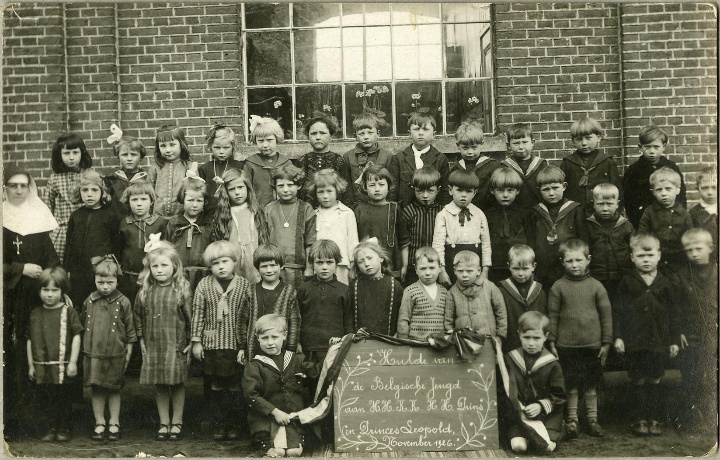 Hulde van
de Belgische Jeugd
aan H.H. K.K. H.H. Prins
en Princes Leopold,
November 1926.